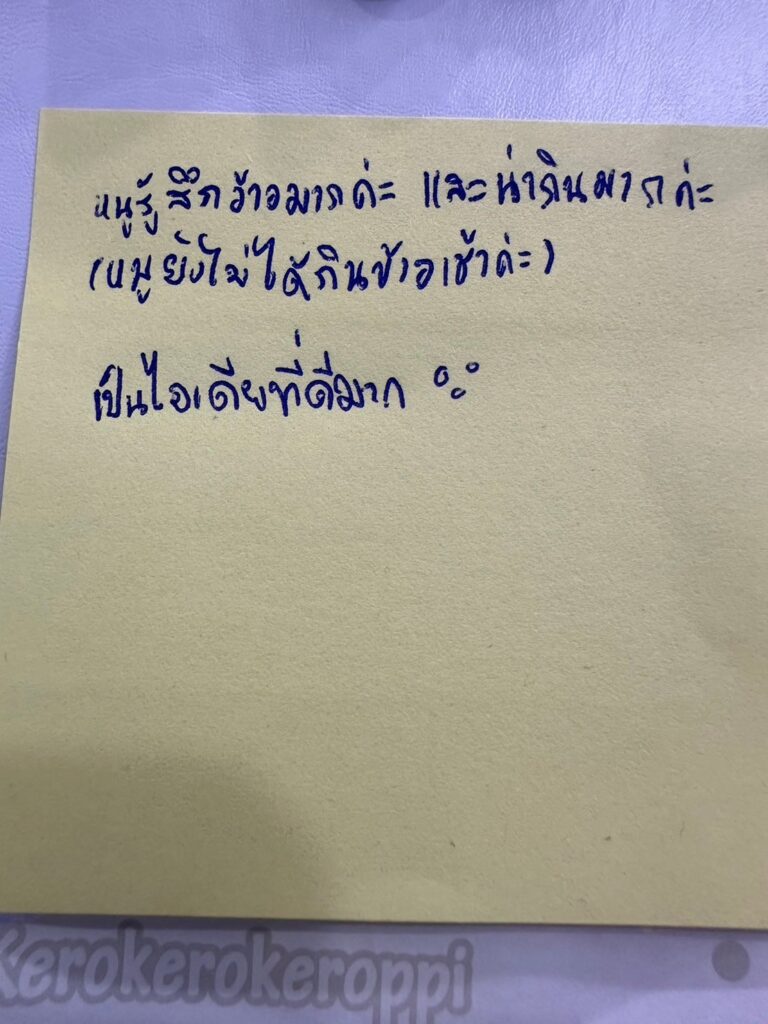 หนูรู้สึกว้าวมากค่ะ และน่ากินมากค่ะ
(หนูยังไม่ได้กินข้าวเช้าค่ะ)
เป็นไอเดียที่ดีมาก
Kerokerokeroppi